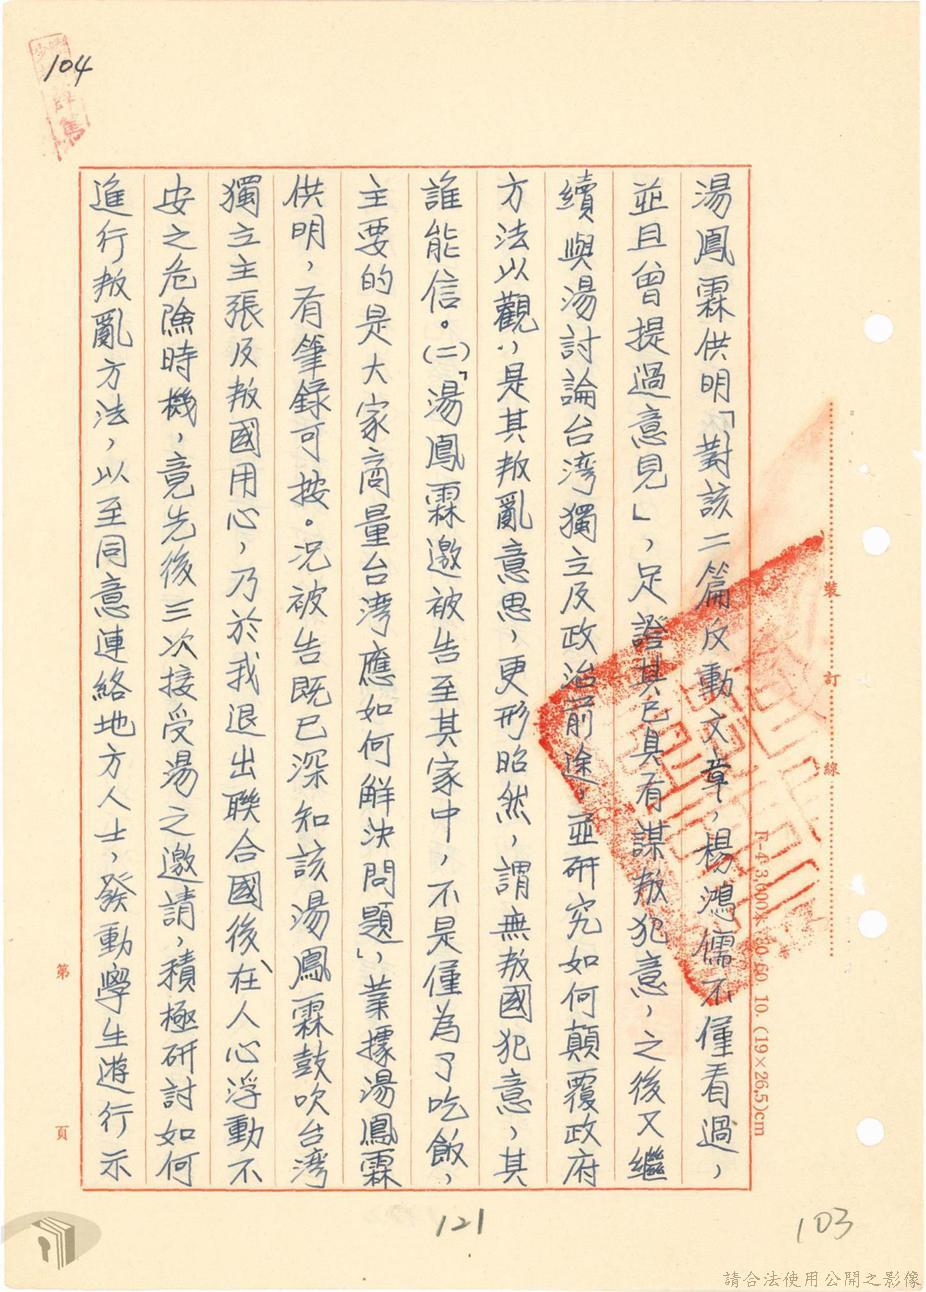 104
湯鳳霖供明「對該二篇反動文章，楊鴻儒不僅看過，
並且曾提過意見」，足證其已具有謀叛犯意，之後又繼
續與湯討論台湾獨立及政治前途，並研究如何顛覆政府
方法以觀，是其叛亂意思，更形昭然，謂無叛國犯意，其
誰能信。(二)「湯鳳霖邀被告至其家中，不是僅為了吃飯，
主要的是大家商量台湾應如何解決問題」，業據湯鳳霖
供明，有筆錄可按。况被告既已深知該湯鳳霖鼓吹台湾
獨立主張及叛國用心，乃於我退出聯合國後、在人心浮動不
安之危險時機，竟先後三次接受湯之邀請，積極研討如何
進行叛亂方法，以至同意連絡地方人士，發動學生遊行示
裝 訂 線
F-4 3,600× 60.10. (19×26.5)cm
第 頁
121
103
請合法使用公開之影像